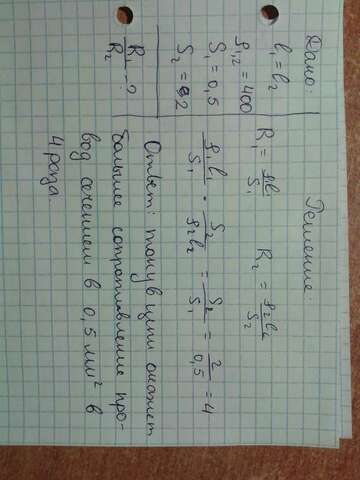 Дано:
l₁ = l₂
ρ₁,₂ = 400
S₁ = 0,5
S₂ = 2
R₁/R₂ - ?
Решение:
R₁ = ρl₁/S₁ R₂ = ρ₂l₂/S₂
ρ₁l₁/S₁ · S₂/ρ₂l₂ = S₂/S₁ = 2/0,5 = 4
Ответ: току в цепи окажет
большее сопротивление про-
вод сечением в 0,5 мм² в
4 раза.